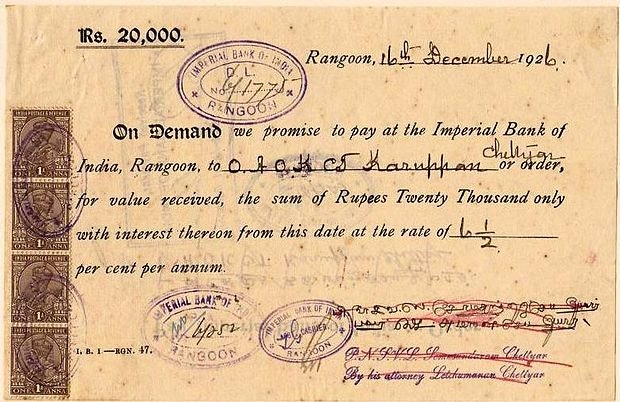 Rs. 20,000.
Rangoon, 16th December 1926.
IMPERIAL BANK OF INDIA
D. L.
NO
RANGOON
On Demand we promise to pay at the Imperial Bank of
India, Rangoon, to O A O K CT Karuppan Chettyar or order,
for value received, the sum of Rupees Twenty Thousand only
with interest thereon from this date at the rate of 6 1/2
per cent per annum.
INDIA POSTAGE & REVENUE
1A
ONE ANNA
INDIA POSTAGE & REVENUE
1A
ONE ANNA
INDIA POSTAGE & REVENUE
1A
ONE ANNA
INDIA POSTAGE & REVENUE
1A
ONE ANNA
IMPERIAL BANK OF
RANGOON
IMPERIAL BANK OF INDIA
CASHIER
RANGOON
I. B. 1—RGN. 47.
P.N.S.V.L. Somasundaram Chettyar
By his attorney Letchumanan Chettyar